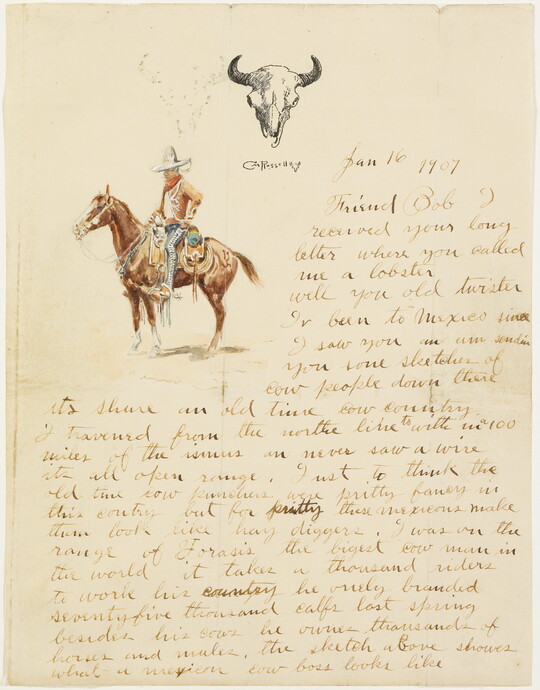 CM Russell
Jan 16 1907
Friend Bob I
received your long
letter where you called
me a lobster
well you old twister
Iv been to Mexico since
I saw you an am sendin
you some sketches of
cow people down there
its shure an old time cow country
I travened from the northe line to with in a 100
miles of the ismus an never saw a wire
its all open range. I ust to think the
old time cow punchers were pritty fancy in
this contry but for pritty these mexicons make
them look like hay diggers. I was on the
range of Forasis the bigest cow man in
the world it takes a thousand riders
to work his country he onely branded
seventyfive thousand calfs last spring
besides his cows he ownes thousands of
horses and mules. the sketch above showes
what a mexicon cow boss looks like